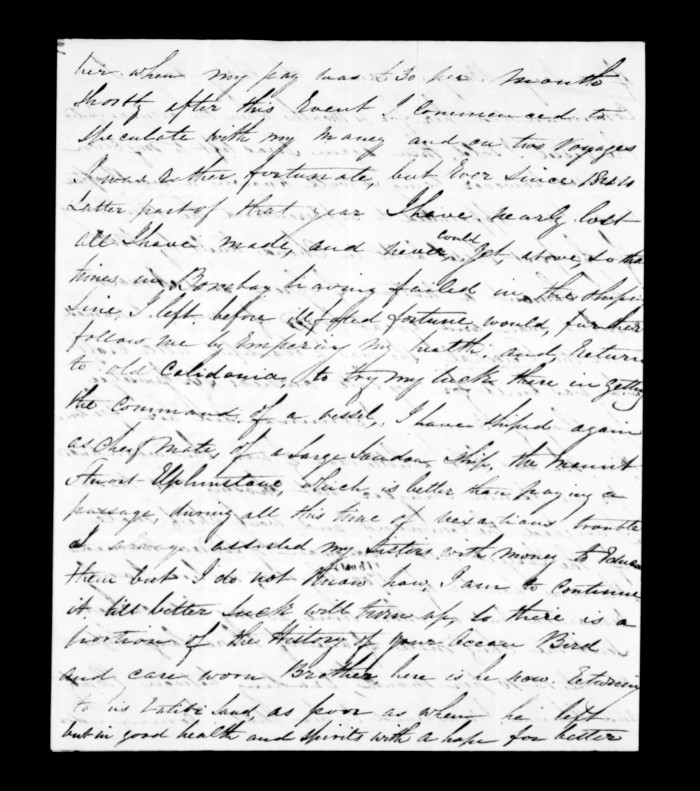 her when my pay was £30 per month
Shortly after this Event I Commenced to
Speculate with my Money and on two Voyages
I was rather fortunate, but Ever Since the
Latter part of that year I have nearly lost
all I have made, and never could get above, so the
times in Bombay having failed in the Shipping
Line, I left before would further
follow me by my health and return
to old Calidonia, to try my luck there in getting
the command of a vessel, I have Shiped again
as Cheif Mate, of a Large London Ship, the Mount
Stuart Elphinstone, which is better than paying a
passage, during all this time of vexactious trouble
I always assisted my Sisters with money to Educate
them but I do not Know how I am to Continue
it till better Luck will turn up, so there is a
portion of the History of your Ocean Bird
and care worn Brother here is he now returning
to his Native Land, as poor as when he left
but in good health and Spirits with a hope for better